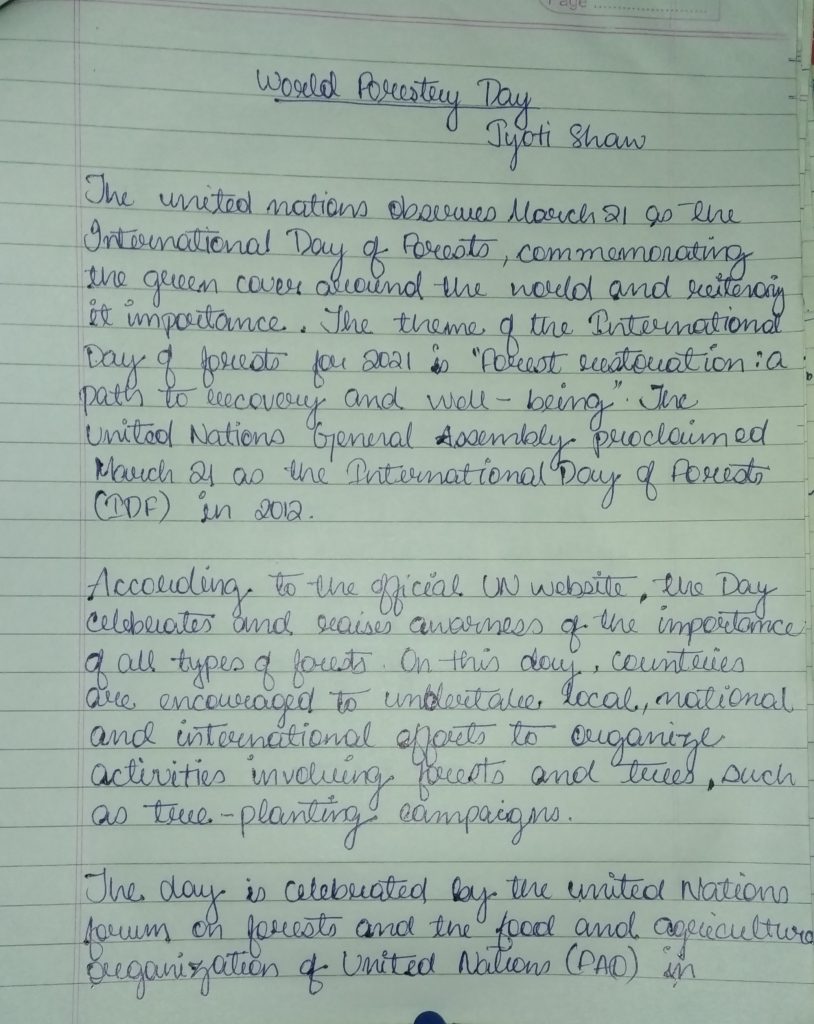 Page
World Forestry Day
Jyoti Shaw
The united nations observes March 21 as the
International Day of Forests, commemorating
the green cover around the world and reiteraing
it importance. The theme of the International
Day of forests for 2021 is "Forest restoration: a
path to recovery and well-being". The
United Nations General Assembly proclaimed
March 21 as the International Day of Forests
(IDF) in 2012.
According to the official UN website, the Day
celebrates and raises awarness of the importance
of all types of forests. On this day, countries
are encouraged to undertake local, national
and international efforts to organize
activities involving forests and trees, such
as tree-planting campaigns.
The day is celebrated by the united Nations
forum on forests and the food and agriculture
organization of United Nations (FAO) in